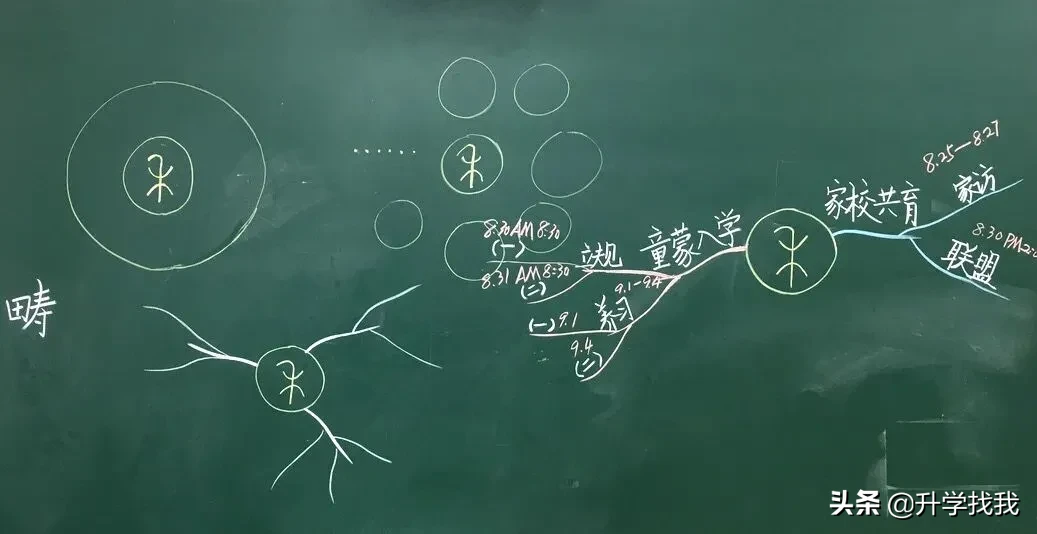 畴
8.30 AM 8:30
(一)
8.31 AM 8:30
(二)
立规
童蒙入学
9.1-9.4
养习
(一) 9.1
9.4
(二)
家校共育
8.25—8.27
家访
8.30 PM 2:0
联盟
头条 @升学找我